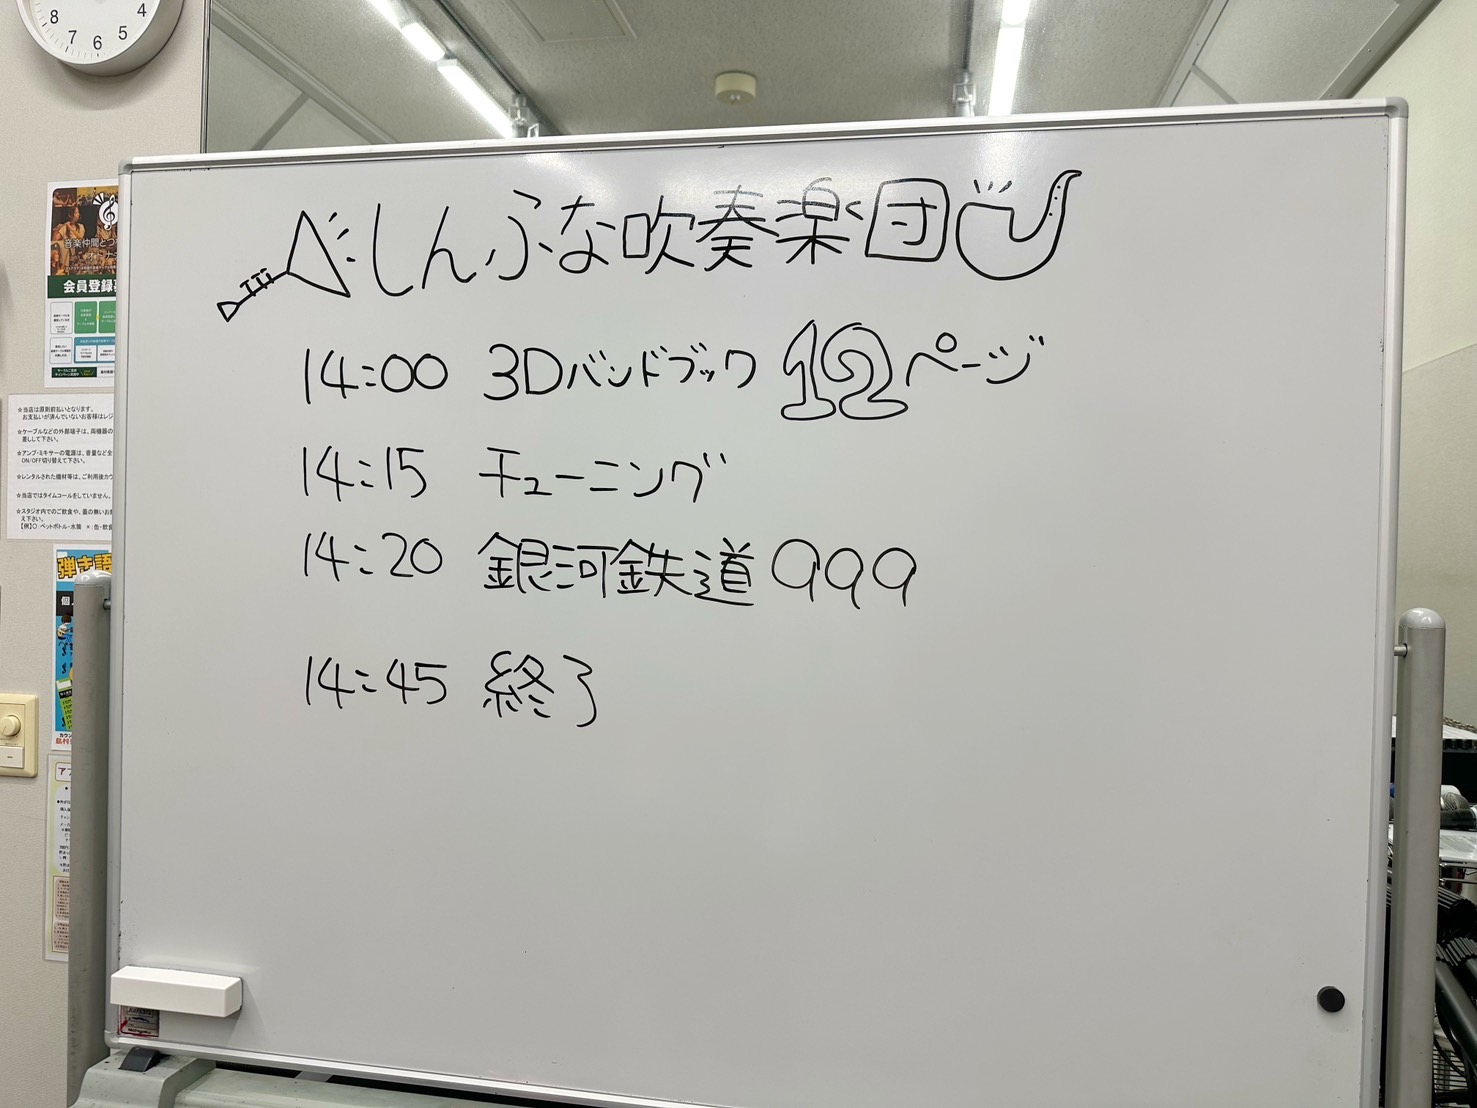 しんふな吹奏楽団
14:00 3Dバンドブック 12ページ
14:15 チューニング
14:20 銀河鉄道999
14:45 終了
8 7 6 5 4
音楽仲間とつ
会員登録
☆当店は原則前払いとなります。
お支払いが済んでいないお客様はレジ
☆ケーブルなどの外部端子は、両機器の
差しして下さい。
☆アンプ・ミキサーの電源は、音量など全
ON/OFF切り替えて下さい。
☆レンタルされた機材等は、ご利用後カウ
☆当店ではタイムコールをしていません。
☆スタジオ内でのご飲食や、蓋の無いお
え下さい。
【例】○：ペットボトル・水筒 ×：缶・飲食
弾き語
個